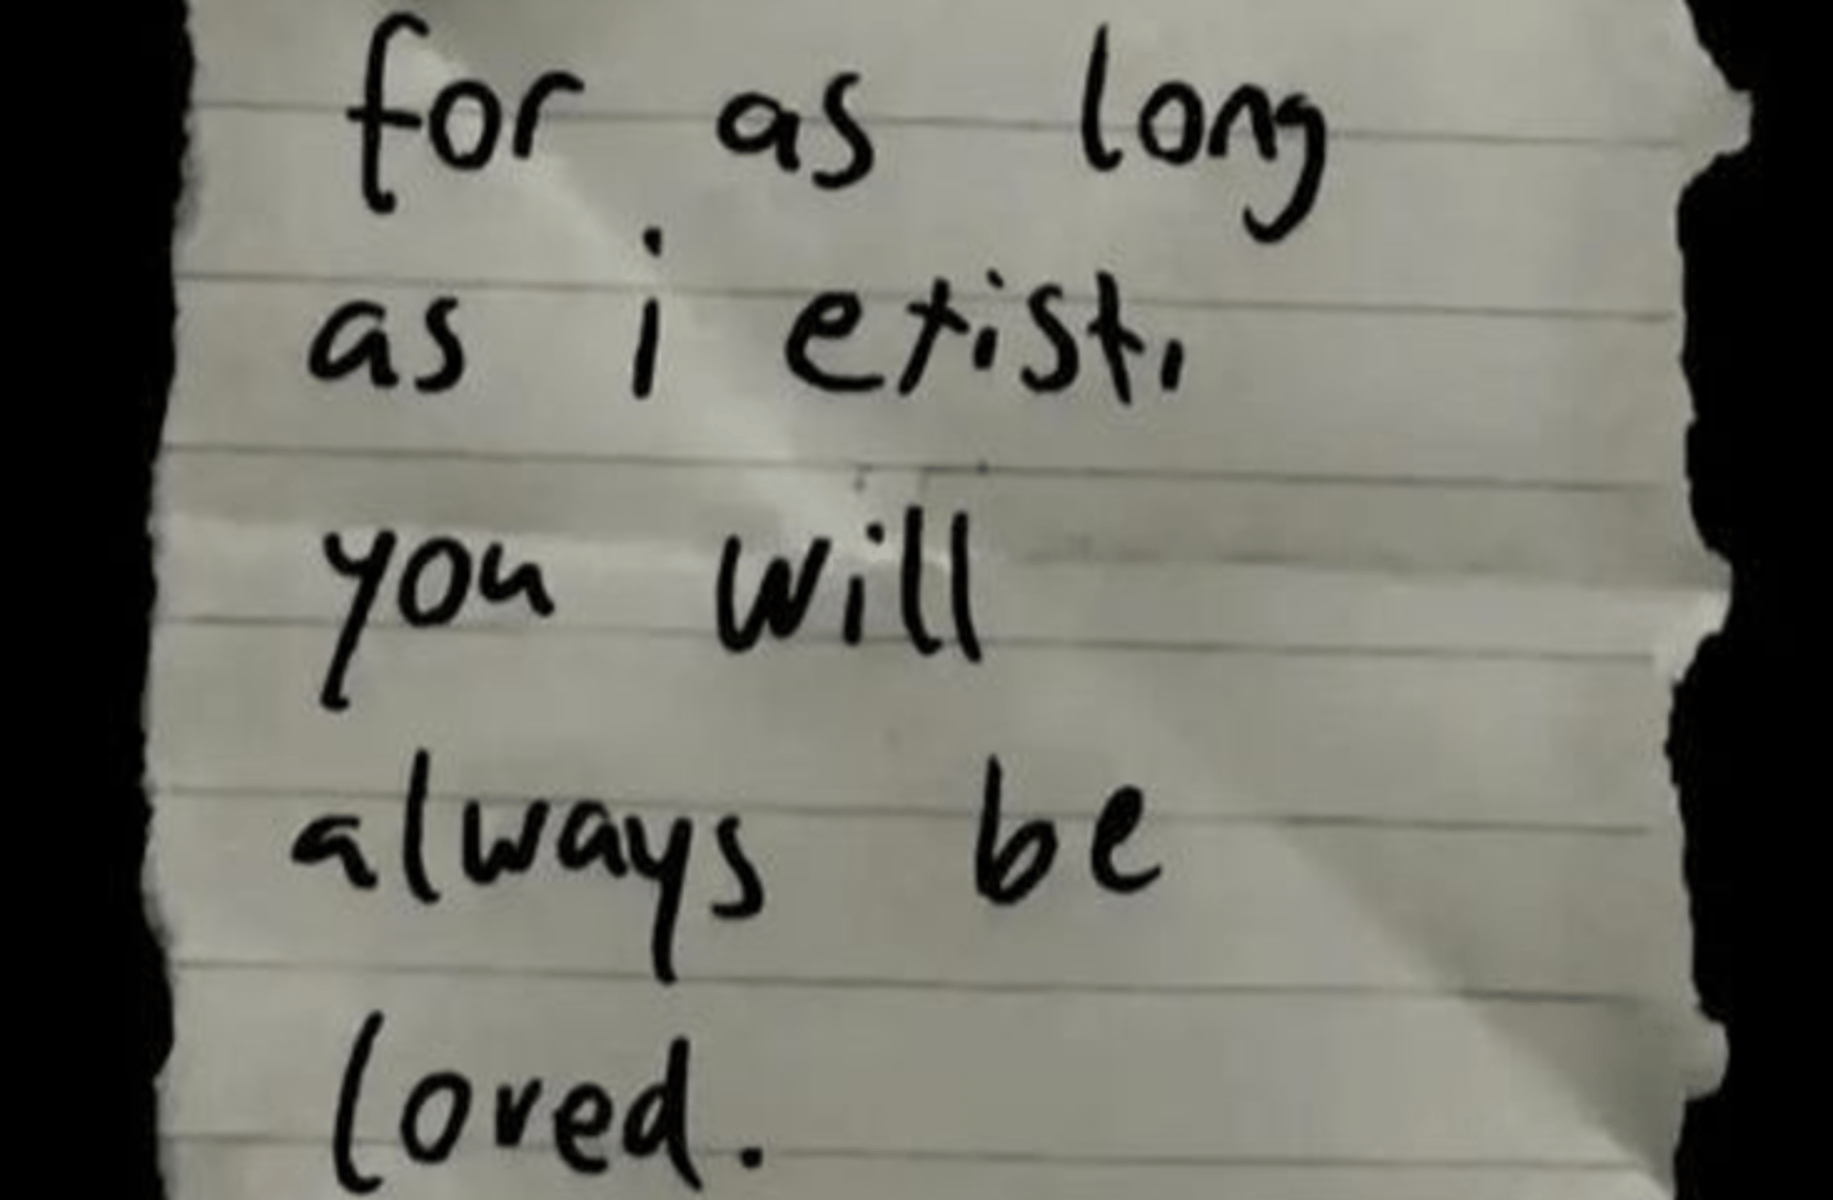 for as long
as i exist,
you will
always be
loved.